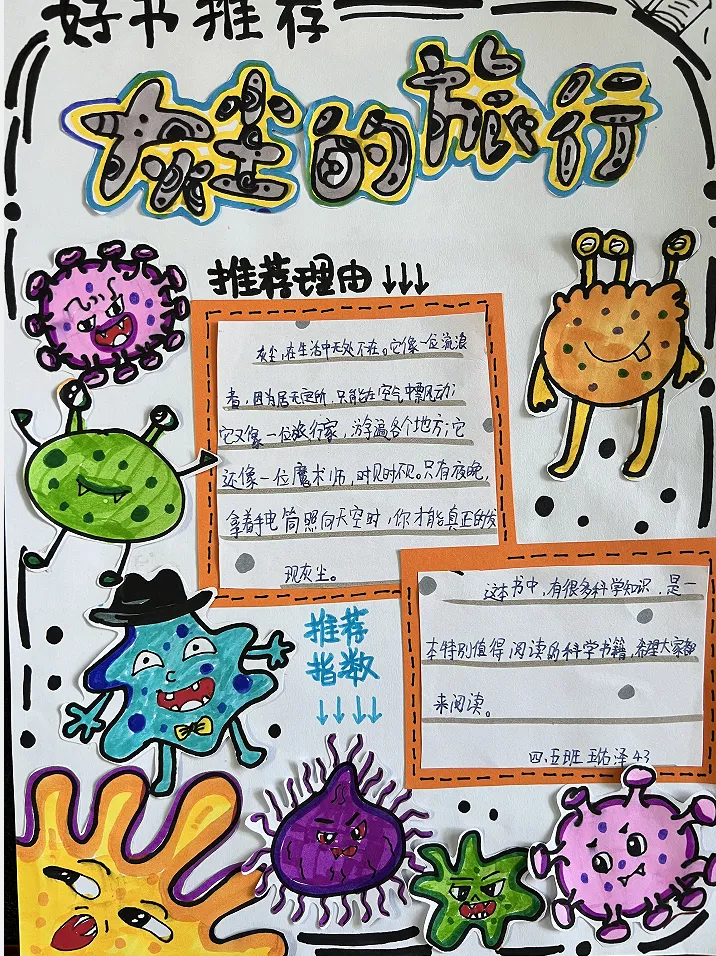 好书推荐
灰尘的旅行
推荐理由↓↓↓
灰尘,在生活中无处不在。它像一位流浪
者,因为居无定所,只能在空气中飘动;
它又像一位旅行家,游遍各个地方;它
还像一位魔术师,时见时不见。只有夜晚,
拿着手电筒照向天空时,你才能真正的发
现灰尘。
推荐
指数
↓↓↓↓
这本书中,有很多科学知识,是一
本特别值得阅读的科学书籍,希望大家都
来阅读。
四.五班 王佑泽 43